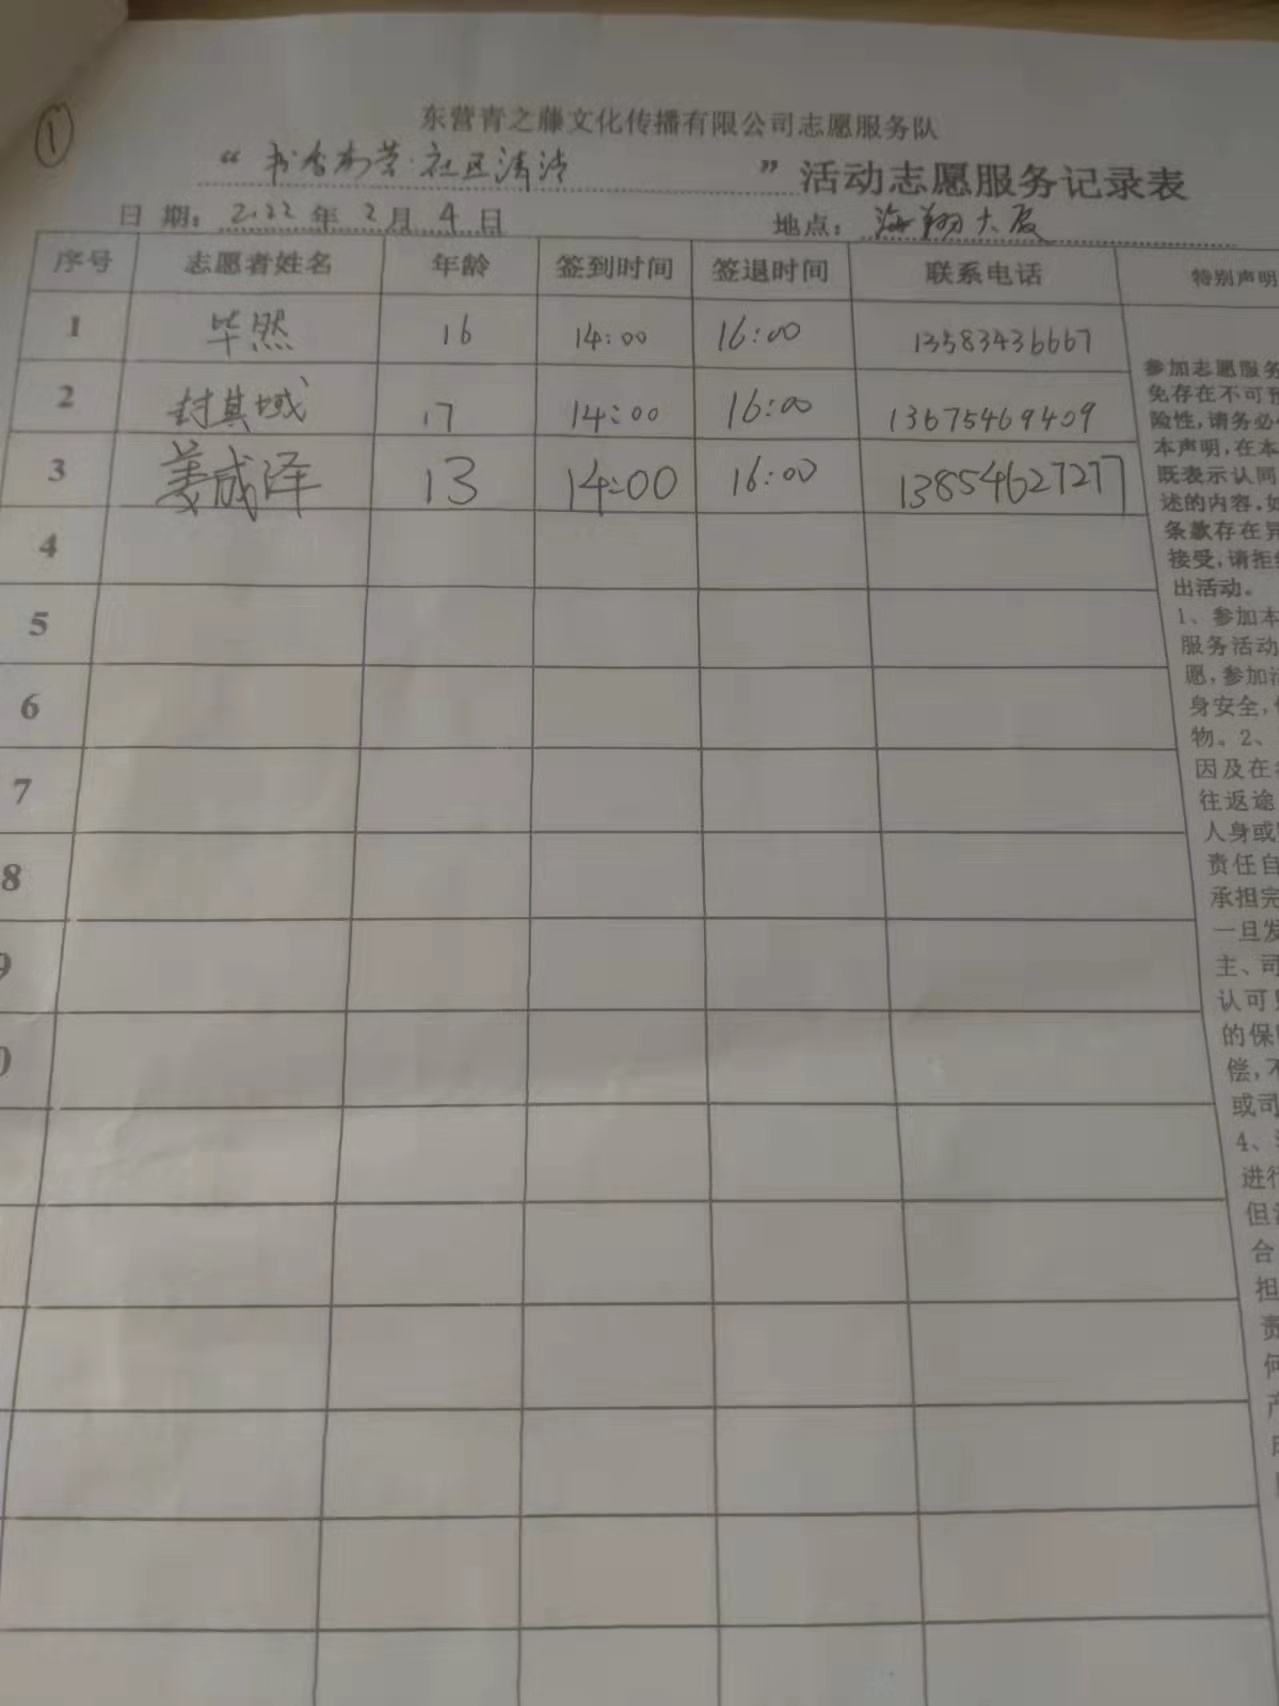 ①
东营青之藤文化传播有限公司志愿服务队
“书香东营·社区清洁”活动志愿服务记录表
日 期：2022年2月4日 地点：海翔大厦
序号 志愿者姓名 年龄 签到时间 签退时间 联系电话 特别声明
1 毕然 16 14:00 16:00 13583436667
2 封其域 17 14:00 16:00 13675469409
3 姜成泽 13 14:00 16:00 13854627277
4
5
6
7
8
9
0
参加志愿服务
免存在不可预
险性,请务必
本声明,在本
既表示认同
述的内容.如
条款存在异
接受,请拒绝
出活动。
1、参加本
服务活动
愿,参加活
身安全,
物。2、
因及在
往返途
人身或
责任自
承担完
一旦发
主、司
认可
的保
偿,不
或司
4、
进行
但
合
担
责
何
产